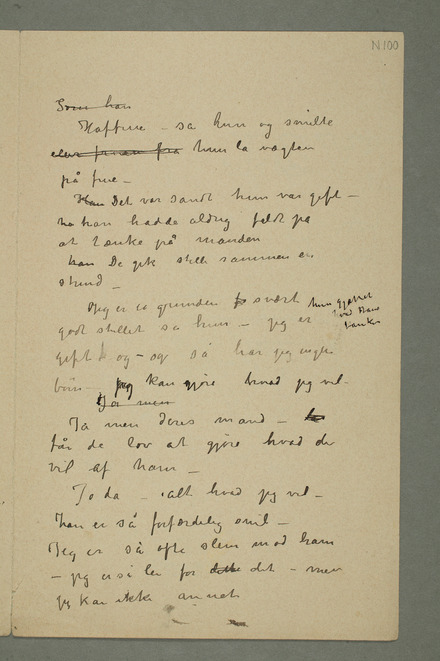 N 100
Som han
Haffrue – sa hun og smilte
hun la vægten
på frue –
Han Det var sandt hun var gift –
ha han hadde aldrig faldt på
at tænke på manden
han De gik stille sammen en
stund –
Jeg er i grunden svært
hun gjættet
hvad hans
tanker
godt stillet sa hun – jeg er
gift og – og så har jeg ingen
børn – jeg kan gjøre hvad jeg vil –
Ja men
Ja men deres mand –
får de lov at gjøre hvad de
vil af ham –
Jo da – alt hvad jeg vil –
han er så forfærdelig snil –
Jeg er så ofte slem mod ham
– jeg er så lei for det – men
jeg kan ikke annet